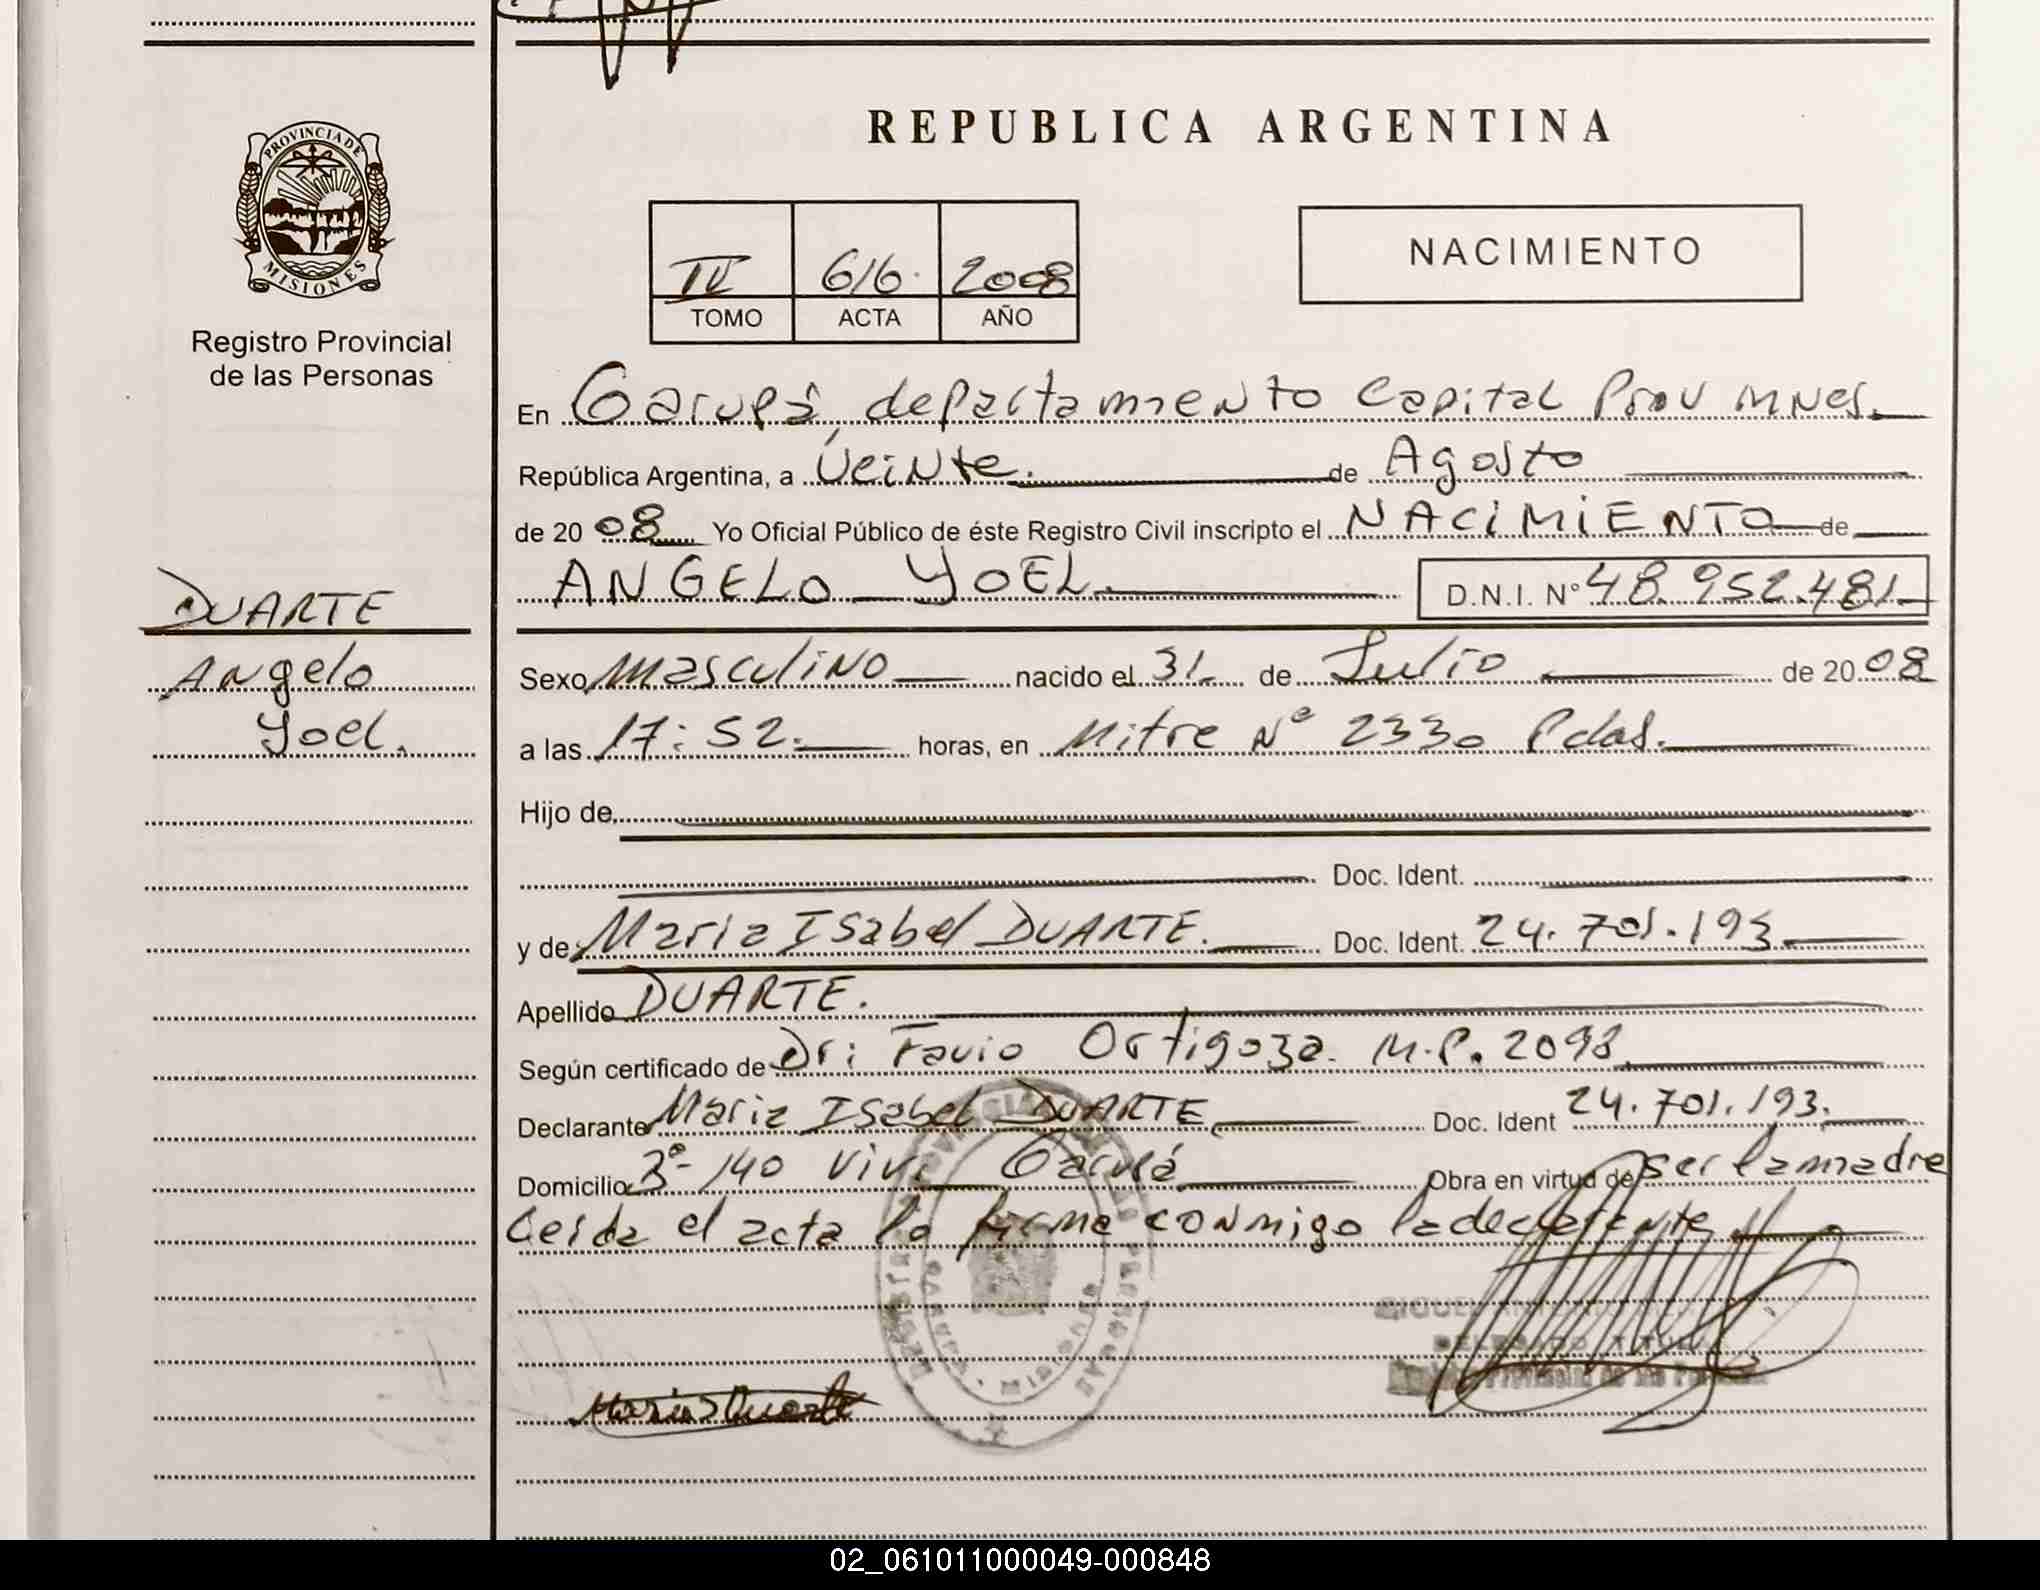 REPUBLICA ARGENTINA
PROVINCIA DE
MISIONES
Registro Provincial
de las Personas
IV 616. 2008
TOMO ACTA AÑO
NACIMIENTO
En Garupá, departamento Capital Prov Mnes.
República Argentina, a Veinte. de Agosto
de 20 08 Yo Oficial Público de éste Registro Civil inscripto el NACIMIENTO de
ANGELO YOEL D.N.I. Nº 48.952.481
DUARTE
Angelo
Yoel.
Sexo Masculino nacido el 31 de Julio de 20 08
a las 17:52. horas, en Mitre Nº 2330 Pdas.
Hijo de
Doc. Ident.
y de Maria Isabel DUARTE. Doc. Ident. 24.701.193
Apellido DUARTE.
Según certificado de Dr: Favio Ortigoza. M.P. 2098
Declarante Maria Isabel DUARTE Doc. Ident 24.701.193.
Domicilio 3º-140 Vivi Garupá Obra en virtud de ser la madre
Leida el acta la firma conmigo la declarante
Maria I Duarte
02_061011000049-000848